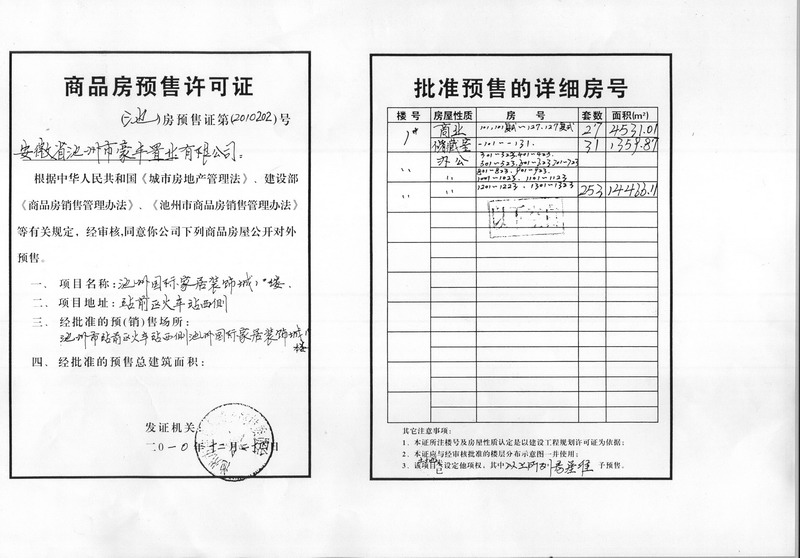 商品房预售许可证
(池)房预售证第(2010202)号
安徽省池州市豪丰置业有限公司:
根据中华人民共和国《城市房地产管理法》、建设部
《商品房销售管理办法》、《池州市商品房销售管理办法》
等有关规定，经审核,同意你公司下列商品房屋公开对外
预售。
一、项目名称:池州国际家居装饰城1#楼.
二、项目地址:站前区火车站西侧
三、经批准的预(销)售场所:
池州市站前区火车站西侧池州国际家居装饰城1#
楼
四、经批准的预售总建筑面积:
发证机关
二0一0年十二月
批准预售的详细房号
楼号 房屋性质 房号 套数 面积(m²)
1# 商业 101.101复式~127.127复式 27 4531.01
储藏室 -101~-131. 31 1359.87
办公 301~323.401~423.
501~523.601~623.701~723
〃 〃 801~823.901~923.
1001~1023.1101~1123
〃 〃 1201~1223.1301~1323 253 14433.11
以下空白
其它注意事项:
1．本证所注楼号及房屋性质认定是以建设工程规划许可证为依据;
2．本证应与经审核批准的楼层分布示意图一并使用;
3．该项目已设定他项权，其中以上所列房屋准予预售。